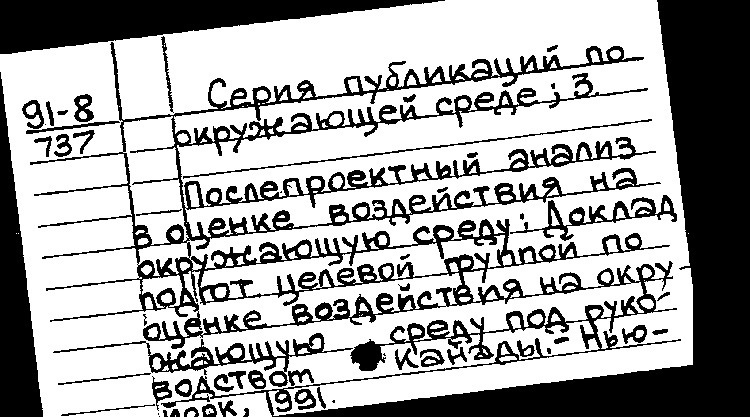 91-8
737
Серия публикаций по
окружающей среде; 3.
Послепроектный анализ
в оценке воздействия на
окружающую среду: Доклад
подгот целевой группой по
оценке воздействия на окру-
жающую среду под руко-
водством Канады. - Нью-
Йорк, 1991.